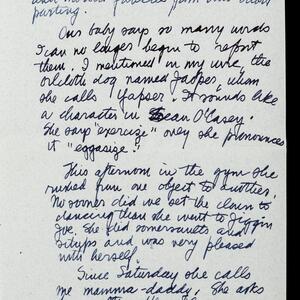 parting.
Our baby says so many words
I can no longer begin to report
them. I mentioned in my wire, the
oilcloth dog named Jasper, whom
she calls Yapser. It sounds like
a character in Sean O'Casey.
She says "exercize" only she pronounces
it "eggasize".
This afternoon in the gym she
rushed from one object to another.
No sooner did we get the clown to
dancing than she went to Jiggin
Joe. She did somersaults and
situps and was very pleased
with herself.
Since Saturday she calls
me mamma-daddy. She asks